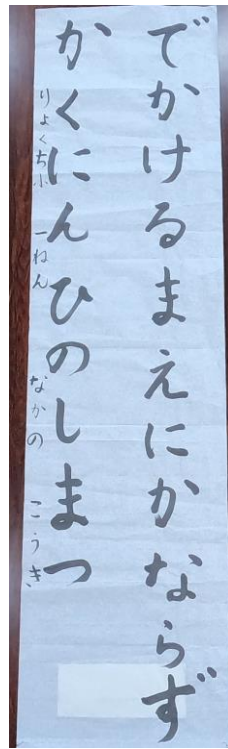 でかけるまえにかならず
かくにんひのしまつ
りょくち小 一ねん なかの こうき